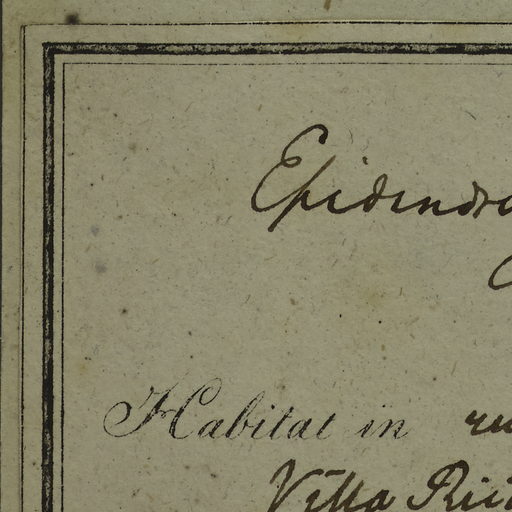 Epidendr
Habitat in
Villa Ri